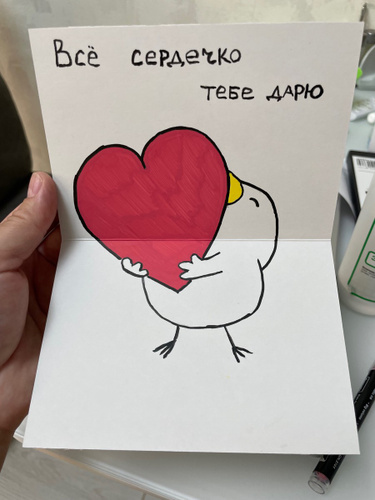 Всё сердечко
тебе дарю